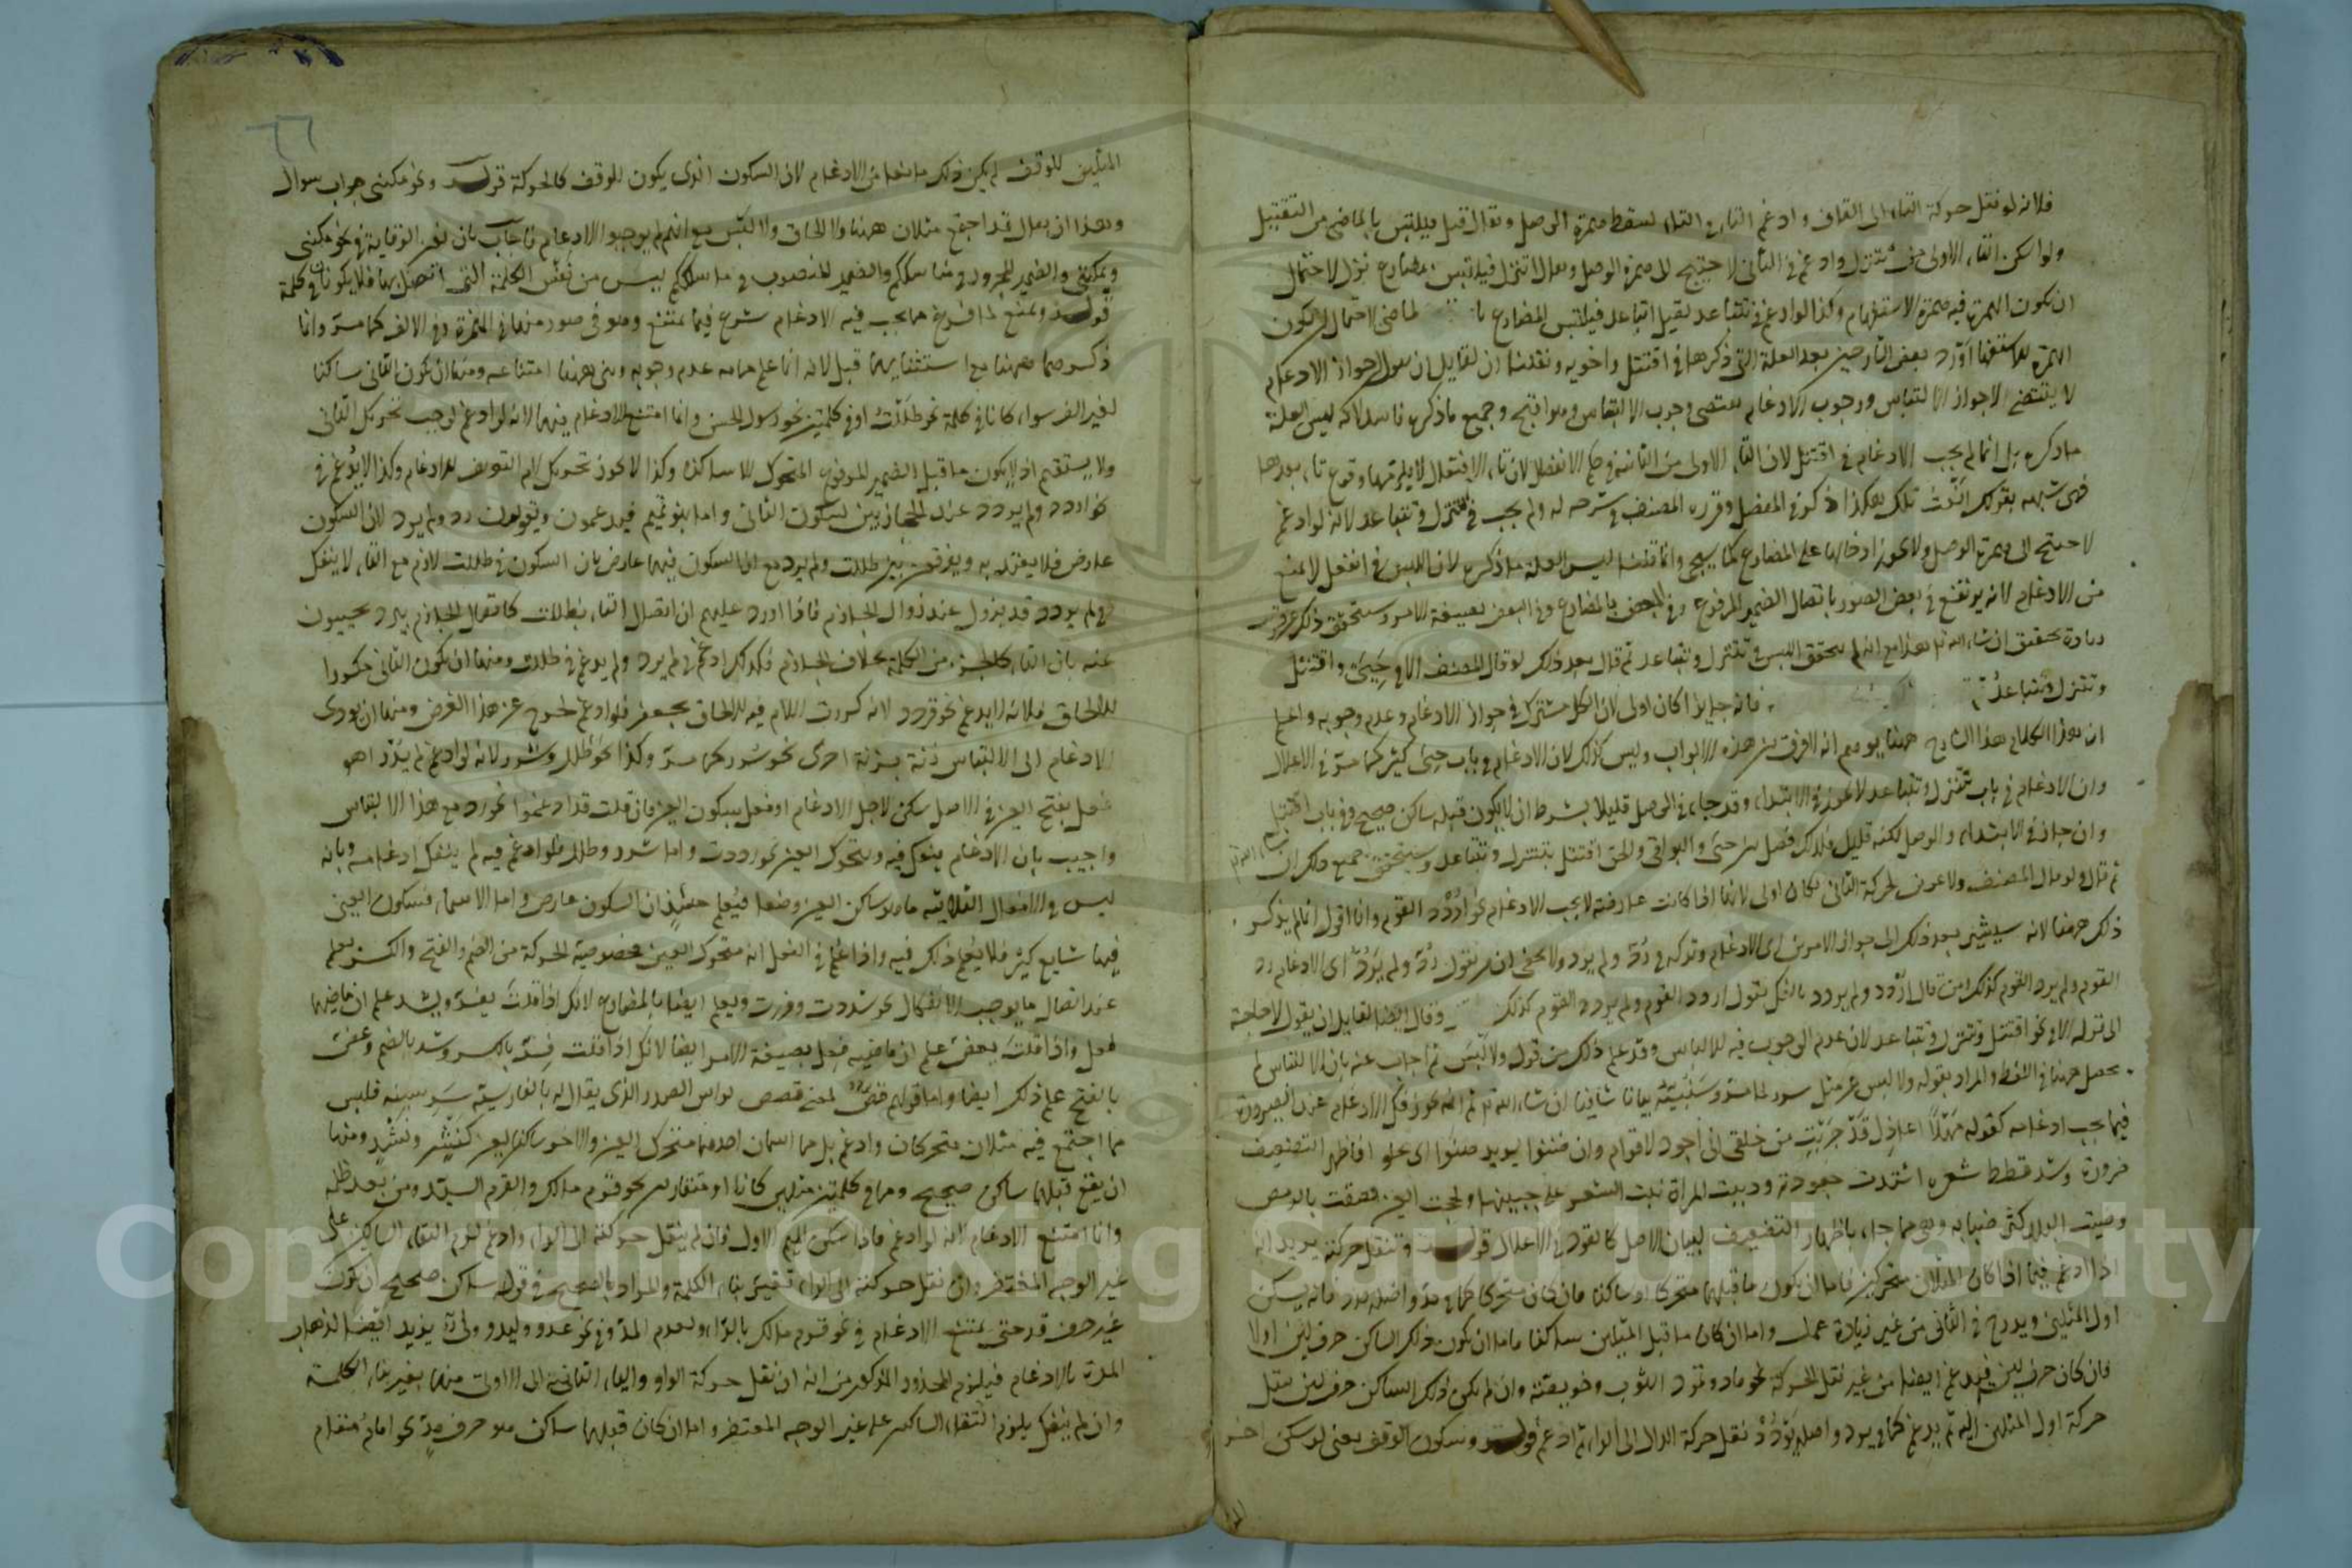 فلانه لو نقل حركة التاء الى القاف وادغم التاء في التاء لسقط همزة الوصل ويقال قتل فيلتبس بالماضى من التقتيل
ولو اسكن التاء الاولى من تتنزل وادغم في الثانى لاحتيج الى همزة الوصل فيلتبس بمضارع نزل لاحتمال
ان يكون الهمزة فيه همزة الاستفهام وكذا لو ادغم في تتباعد لقيل اتباعد فيلتبس المضارع بالماضى لاحتمال ان يكون
الهمزة للاستفهام اورد بعض الشارحين بعد العلة التى ذكرها في اقتتل واخويه ان لقايل ان يقول جواز الادغام
لا يقتضى الا جواز الالتباس ووجوب الادغام يقتضى وجوب الالتباس وهو اقبح وجميع ما ذكره فاسد لانه ليس العلة
ما ذكره بل انما لم يجب الادغام في اقتتل لان التاء الاولى من الثانية في حكم الانفصال لان تاء الافتعال لا يلزمها وقوع تاء بعدها
فهى شبهه بقولك انعت تلك هكذا ذكر في المفصل وقرره المصنف في شرحه له ولم يجب في تتنزل وتتباعد لانه لو ادغم
لاحتيج الى همزة الوصل ولا يجوز ادخالها على المضارع كما يجيء وانما قلنا ليس العلة ما ذكره لان اللبس في افتعل لا يمنع
من الادغام لانه يرتفع في بعض الصور باتصال الضمير المرفوع وفي البعض بالمضارع وفي البعض بصيغة الامر وستحقق ذلك
زيادة تحقيق ان شاء الله مع انه لم يتحقق اللبس في تتنزل وتتباعد ثم قال بعد ذلك لو قال المصنف الا في حيى واقتتل
وتتنزل وتتباعد فانه جايز لكان اولى لان الكل مشترك في جواز الادغام وعدم وجوبه واعلم
ان هذا الكلام هذا الشارح ههنا يوهم انه لا فرق بين هذه الابواب وليس كذلك لان الادغام في باب حيى كثير كما مر في الاعلال
وان الادغام في باب تتنزل وتتباعد لا يجوز في الابتداء وقد جاء في الوصل قليلا بشرط ان لا يكون قبله ساكن صحيح وفي باب اقتتل
وان جاز في الابتداء والوصل لكنه قليل فلذلك فصل بين حيى والبواقى والحق اقتتل بتتنزل وتتباعد وستحقق جميع ذلك ان شاء الله
ثم قال ولو قال المصنف ولا عروض لحركة الثانى لكان اولى لانها اذا كانت عارضة لا يجب الادغام نحو اردد القوم وانا اقول انما لم يذكر
ذلك ههنا لانه سيشير بعد ذلك الى جواز الامرين اى الادغام وتركه في رد ولم يرد ولا يخفى ان من يقول رد ولم يرد اى بالادغام رد
القوم ولم يرد القوم كذلك ومن قال اردد ولم يردد بالفك يقول اردد القوم ولم يردد القوم كذلك وقال ايضا لقايل ان يقول لا حاجة
الى قوله الا في نحو اقتتل وتتنزل وتتباعد لان عدم الوجوب فيه للالباس وقد علم ذلك من قوله ولا لبس ثم اجاب عنه بان الالتباس لم
يحصل ههنا في اللفظ والمراد بقوله ولا لبس عن مثل سرر لما مر وسنبينه بيانا شافيا ان شاء الله ثم انه يجوز فك الادغام عند الضرورة
فيما يجب ادغامه كقوله مهلا اعاذل قد جربت من خلقى انى اجود لاقوام وان ضننوا يريد ضنوا اى بخلوا فاظهر التضعيف
ضرورة وشذ قطط شعره اشتدت جعودته ودببت المراة نبت الشعر على جبينها ولححت العين لصقت بالرمص
وضبب البلد كثر ضبابه وهى مما جاء باظهار التضعيف لبيان الاصل كالقود في الاعلال قوله وتنقل حركته يريد انه
اذا ادغم فيما اذا كان المثلان متحركين فاما ان يكون ما قبلهما متحركا او ساكنا فان كان متحركا كما في مد واصله مدد فانه يسكن
اول المثلين ويدرج في الثانى من غير زيادة عمل واما ان كان ما قبل المثلين ساكنا فاما ان يكون ذلك الساكن حرف لين اولا
فان كان حرف لين فيدغم ايضا من غير نقل الحركة نحو ماد وتمود الثوب وخويصة وان لم يكن ذلك الساكن حرف لين ينقل
حركة اول المثلين اليه ثم يدغم كما في يرد واصله يردد نقل حركة الدال الى الراء ثم ادغم قوله وسكون الوقف يعنى لو سكن اخر
المثلين للوقف لم يكن ذلك مانعا من الادغام لان السكون الذى يكون للوقف كالحركة قوله ونحو مكننى جواب سوال
وهذا ان يقال قد اجتمع مثلان ههنا ولا الحاق ولا لبس مع انهم لم يوجبوا الادغام فاجاب بان نون الوقاية في نحو مكننى
ويمكننى والضمير المجرور في مناسككم والضمير المنصوب في ما سلككم ليس من نفس الكلمة التى اتصل بها فلا يكونان في كلمة
قوله ويمتنع لما فرغ مما يجب فيه الادغام شرع فيما يمتنع وهو في صور منها في الهمزة وفي الالف كما مر وانما
ذكرهما ههنا مع استثنايهما قبل لانه انما علم هناك عدم وجوبه وبين ههنا امتناعه ومنها ان يكون الثانى ساكنا
لغير الوقف سواء كانا في كلمة نحو ظللت او في كلمتين نحو رسول الحسن وانما امتنع الادغام فيهما لانه لو ادغم لوجب تحريك الثانى
ولا يستقيم اذ لا يكون ما قبل الضمير المرفوع المتحرك الا ساكنا وكذا لا يجوز تحريك لام التعريف للادغام وكذا لا يدغم في
نحو اردد ولم يردد عند الحجازيين لسكون الثانى واما بنو تميم فيدغمون ويقولون رد ولم يرد لان السكون
عارض فلا يعتد به ويفرق بين ظللت ولم يرد مع ان السكون فيهما عارض بان السكون في ظللت لازم مع التاء لا ينفك
وفي لم يردد قد يزول عند زوال الجازم فاذا اورد عليهم ان اتصال التاء بظللت كاتصال الجازم بيرد يجيبون
عنه بان التاء كالجزء من الكلمة بخلاف الجازم فلذلك ادغم في لم يرد ولم يدغم في ظللت ومنها ان يكون الثانى مكررا
للالحاق فلانه لا يدغم نحو قردد لانه كررت اللام فيه للالحاق بجعفر فلو ادغم لخرج عن هذا الغرض ومنها ان يودى
الادغام الى الالتباس زنة بزنة اخرى نحو سرر كما مر وكذا نحو طلل وشرر لانه لو ادغم لم يدر اهو
فعل بفتح العين في الاصل سكن لاجل الادغام او فعل بسكون العين فان قلت قد ادغموا نحو رد مع هذا الالتباس
واجيب بان الادغام ينفك فيه ويتحرك العين نحو رددت واما شرر وطلل فلو ادغم فيه لم ينفك ادغامه وبانه
ليس في الافعال الثلاثية ما هو ساكن العين وضعا فيعلم حينئذ ان السكون عارض واما الاسماء فسكون العين
فيها شايع كثير فلا يعلم ذلك فيه واذا علم في الفعل انه متحرك العين فخصوصية الحركة من الضم والفتح والكسر يعلم
عند اتصال ما يوجب الانفكاك نحو شددت وفررت ويعلم ايضا بالمضارع لانك اذا قلت يفر ويشد علم ان ماضيهما
فعل واذا قلت يعض علم ان ماضيه فعل بصيغة الامر ايضا لانك اذا قلت فر بالكسر وشد بالضم وعض
بالفتح علم ذلك ايضا واما قولهم قص لمعنى قصص لراس الصدر الذى يقال له بالفارسية سر سينه فليس
مما اجتمع فيه مثلان متحركان وادغم بل هما اسمان احدهما متحرك العين والاخر ساكن العين كنشر ونشر ومنها
ان يقع قبلهما ساكن صحيح وهما في كلمتين مثلين كانا او متقاربين نحو قرم مالك والقرم السيد ومن بعد ظلمه
وانما امتنع الادغام لانه لو ادغم فاذا سكن الميم الاول فان لم ينقل حركته الى الراء وادغم لزم التقاء الساكنين على
غير الوجه المغتفر وان نقل حركته الى الراء تغير بناء الكلمة والمراد بالصحيح في قوله ساكن صحيح ان يكون
غير حرف مد حتى يمتنع الادغام في نحو قرم مالك بالراء ولعدم المد وفي نحو عدو وليد وولى يزيد ايضا لذهاب
المدة بالادغام فيلزم المحذور المذكور من انه ان نقل حركة الواو والياء الثانية الى الاولى منهما يغير بناء الكلمة
وان لم ينقل يلزم التقاء الساكنين على غير الوجه المغتفر واما ان كان قبلهما ساكن هو حرف مد نحو امام منام